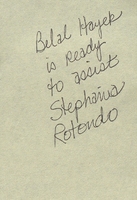 Bilal Hayek
is ready
to assist
Stephanus
Rotondo